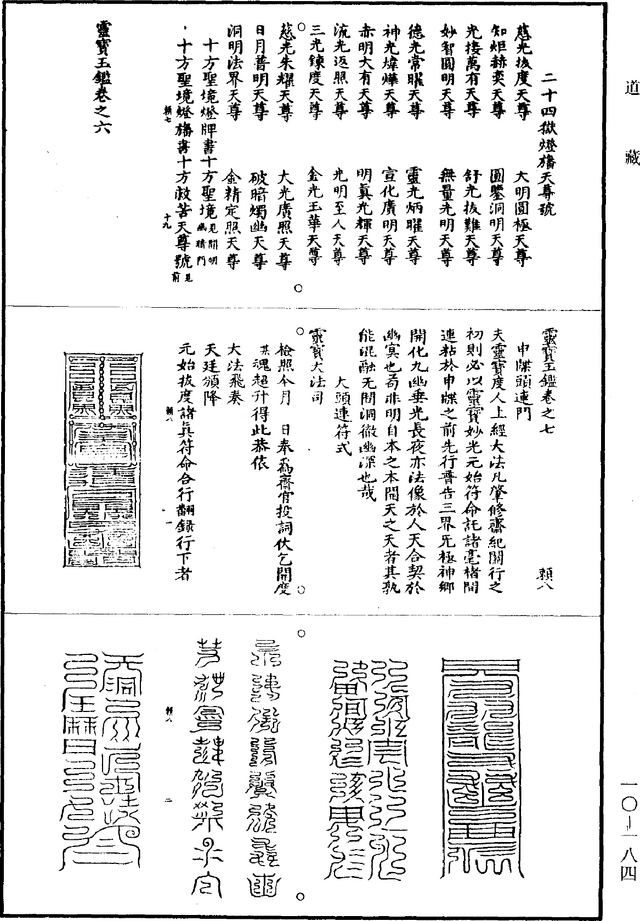 道藏
二十四獄燈檠天尊號
慈光拔度天尊 大明圓極天尊
知炬赫奕天尊 圓鑒洞明天尊
光接萬有天尊 舒光拔難天尊
妙智圓明天尊 無量光明天尊
德光常曜天尊 靈光炳曜天尊
神光煒燁天尊 宣化廣明天尊
赤明大有天尊 明真光輝天尊
流光返照天尊 光明至人天尊
三光鍊度天尊 金光玉華天尊
慈光朱耀天尊 大光廣照天尊
日月普明天尊 破暗燭幽天尊
洞明法界天尊 金精定照天尊
十方聖境燈牌書十方聖境見開明幽暗門
十方聖境燈檠書十方救苦天尊號見前
賴七 十九
靈寶玉鑑卷之六
靈寶玉鑑卷之七 賴八
申牒頭連門
夫靈寶度人上經大法凡肇修齋紀關行之
初則必以靈寶妙光元始符命託諸毫楮間
連粘於申牒之前先行普告三界無極神鄉
開化九幽垂光長夜亦法像於人天合契於
幽冥也苟非明自本之本開天之天者其孰
能混融无間洞徹幽深也哉
大頭連符式
靈寶大法司
檢照今月 日奉為齋官投詞伏乞開度
某魂超升得此恭依
大法飛奏
天廷頒降
元始拔度諸真符命合行翻錄行下者
賴八 一
賴八 二
一〇-一八四